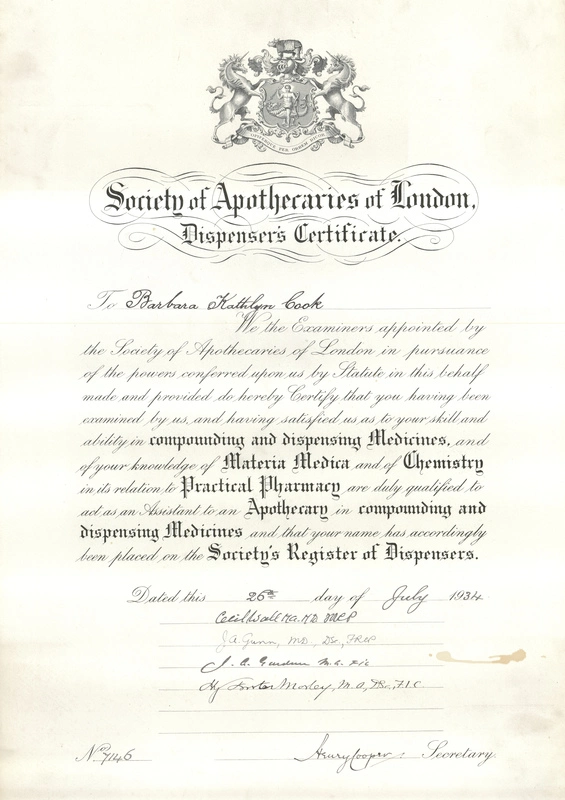 OPIFERQUE PER ORBEM DICOR
Society of Apothecaries of London,
Dispenser's Certificate.
To Barbara Kathlyn Cook
We the Examiners appointed by
the Society of Apothecaries of London in pursuance
of the powers conferred upon us by Statute in this behalf
made and provided do hereby Certify that you having been
examined by us, and having satisfied us as to your skill and
ability in compounding and dispensing Medicines, and
of your knowledge of Materia Medica and of Chemistry
in its relation to Practical Pharmacy are duly qualified to
act as an Assistant to an Apothecary in compounding and
dispensing Medicines and that your name has accordingly
been placed on the Society's Register of Dispensers.
Dated this 26th day of July 1934
Cecil Wall MA. MD. FRCP
J.A. Gunn, MD., DSc., FRCP
J. A. Gardner M.A. FIC
Hy Forster Morley, M.A, DSc, F.I.C.
No 7146 Henry Cooper Secretary.